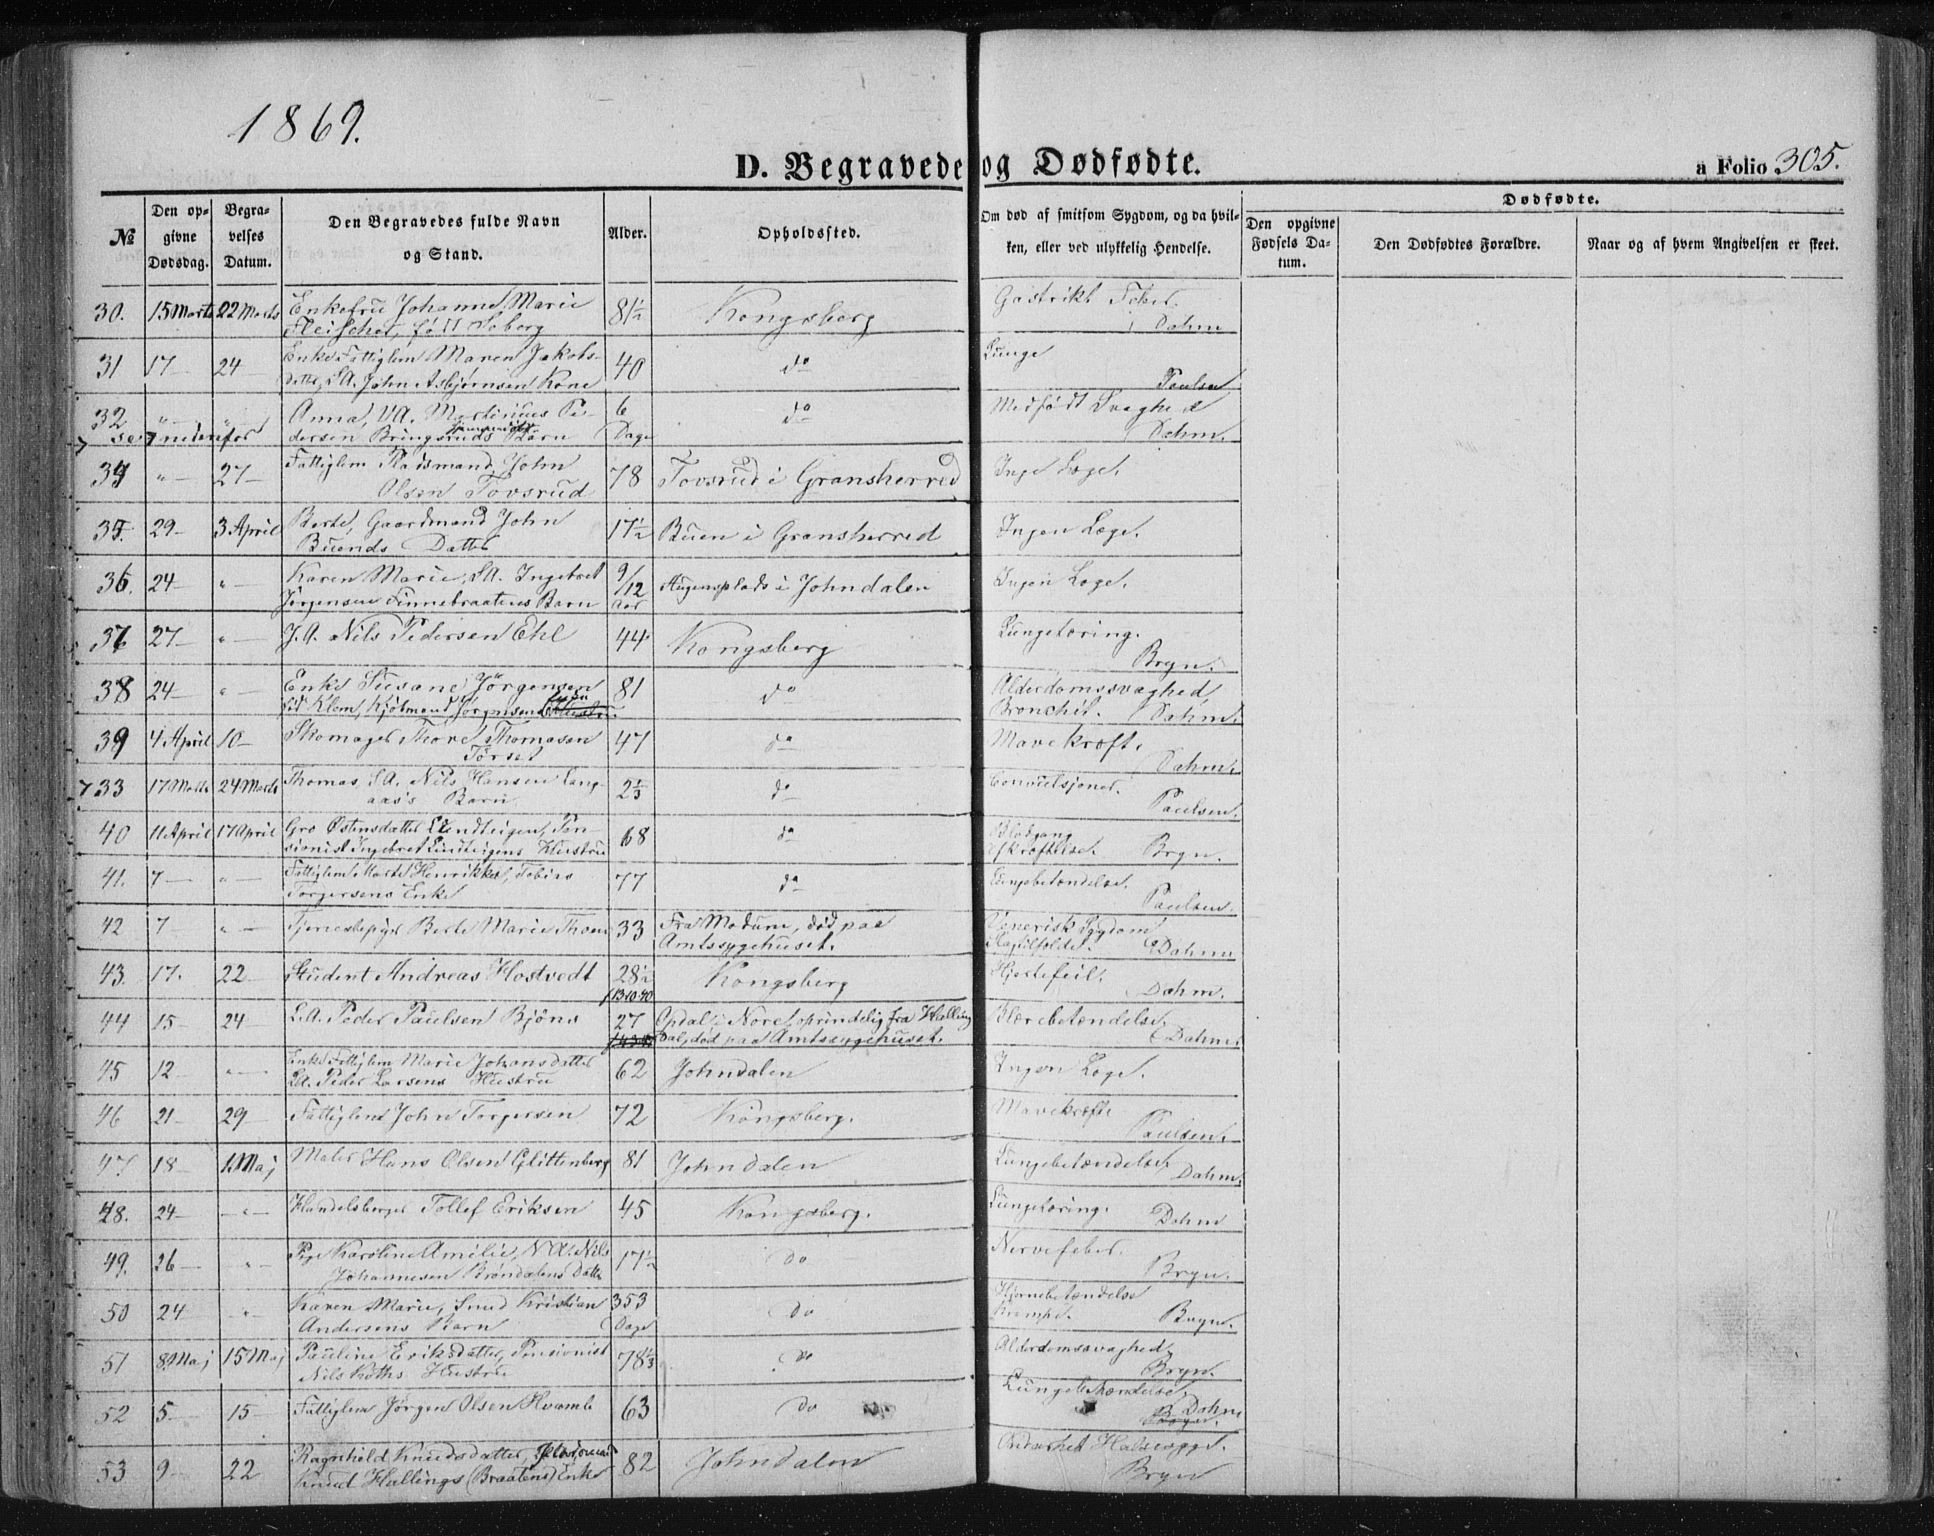 1869.
D. Begravede og Dødfødte.
a Folio 305.
№
Den op-
givne
Dødsdag.
Begra-
velses
Datum.
Den Begravedes fulde Navn
og Stand.
Alder.
Opholdssted.
Om død af smitsom Sygdom, og da hvil-
ken, eller ved ulykkelig Hendelse.
Dødfødte.
Den opgivne
Fødsels Da-
tum.
Den Dødfødtes Forældre.
Naar og af hvem Angivelsen er skeet.
30. 15 Marts 22 Marts Enkefru Johanne Marie 81½ Kongsberg Gastrikt Feber.
Fleischer, født Dahm
31 17 — 24 — Enke Fattiglem Maren Jakobs- 40 do Lunge
datter, S.A. John Asbjørnsen Kone Paulsen
32 „ — „ Anna, V.A. Martinius Pe- 6 do Medfødt Svaghed
dersen Bringsruds Barn Dage Dahm.
7 se 7 nedenfor
34 „ — 27 — Fattiglem Pladsmand John 78 Tovsrud i Gransherred Inge Læge.
Olsen Tovsrud
35. 29 — 3 April Berte, Gaardmand John 17½ Buen i Gransherred Ingen Læge.
Buends Datter
36. 24 — „ — Karen Marie, S.A. Ingebret 9/12 i Johndalen Ingen Læge.
Jørgensen Finnebraatens Barn Aar
37 27 — „ — J.A. Nils Pedersen Ehl 44 Kongsberg Lungetæring.
Bryn.
38 24 — „ — Enke Susane Jørgensen 81 do Alderdomssvaghed
fød Klem, Kjøbmand Jørgensens Bronchit. Dahm.
39 4 April 10 — Skomager Thore Thomasen 47 do Mavekræft.
Dahm.
7 33 17 Marts 24 Marts Thomas, S.A. Nils Hansen Lang- 2⅔ do Convulsjoner.
aas's Barn Paulsen.
40 11 April 17 April Gro Østensdatter Lindteigen, Pen- 68 do Blodgang
sionist Ingebret Lindteigens Hustru Afkræftelse. Bryn.
41. 7 — „ — Fattiglem Marte Henrikke, Tobias 77 do Lungebetændelse.
Torgersens Enke Paulsen.
42 7 — „ — Tjenestepige Berte Marie Thoen 33 Fra Modum, død paa Venerisk Sygdom
Amtssygehuset. Dahm
43. 17. 22 — Student Andreas Hostvedt 28½ Kongsberg Hjertefeil.
f 13-10-40 Dahm.
44 15 — 24 — L.A. Peder Paulsen Bjöns 27 Opdal i Nore, oprindelig fra Halling Blærebetændelse.
dal, død paa Amtssygehuset. Dahm.
45 12 — „ — Enke Fattiglem Marie Johansdatter 62 Johndalen Ingen Læge.
L.A. Peder Larsens Hustru
46 21 — 29 — Fattiglem John Torgersen 72 Kongsberg. Mavekræft
Paulsen.
47. 18 — 1 Maj Maler Hans Olsen Glittenberg 81 Johndalen Lungebetændelse
Dahm.
48. 24 — — „ — Handelsborger Tollef Eriksen 45 Kongsberg. Lungetæring.
Dahm
49. 26 — „ — Pige Karoline Amelie, N.A. Nils 17½ do Nervefeber.
Johannesen Brøndalens Datter Bryn.
50 24 — „ — Karen Marie, Smed Kristian 353 do Hjernebetændelse
Andersens Barn Dage Krampe. Bryn.
51 8 Maj 15 Maj Pauline Eriksdatter, Pensionist 78⅓ do Alderdomssvaghed
Nils Koths Hustru Bryn.
52 5 — 15 — Fattiglem Jørgen Olsen Hvamb 63 do Lungebetændelse.
Dahm
Bryn.
53 9 — 22 — Ragnhild Knudsdatter, Pladsmand 82 Johndalen Ondartet
Knud Hallings (Braatens) Enke Bryn